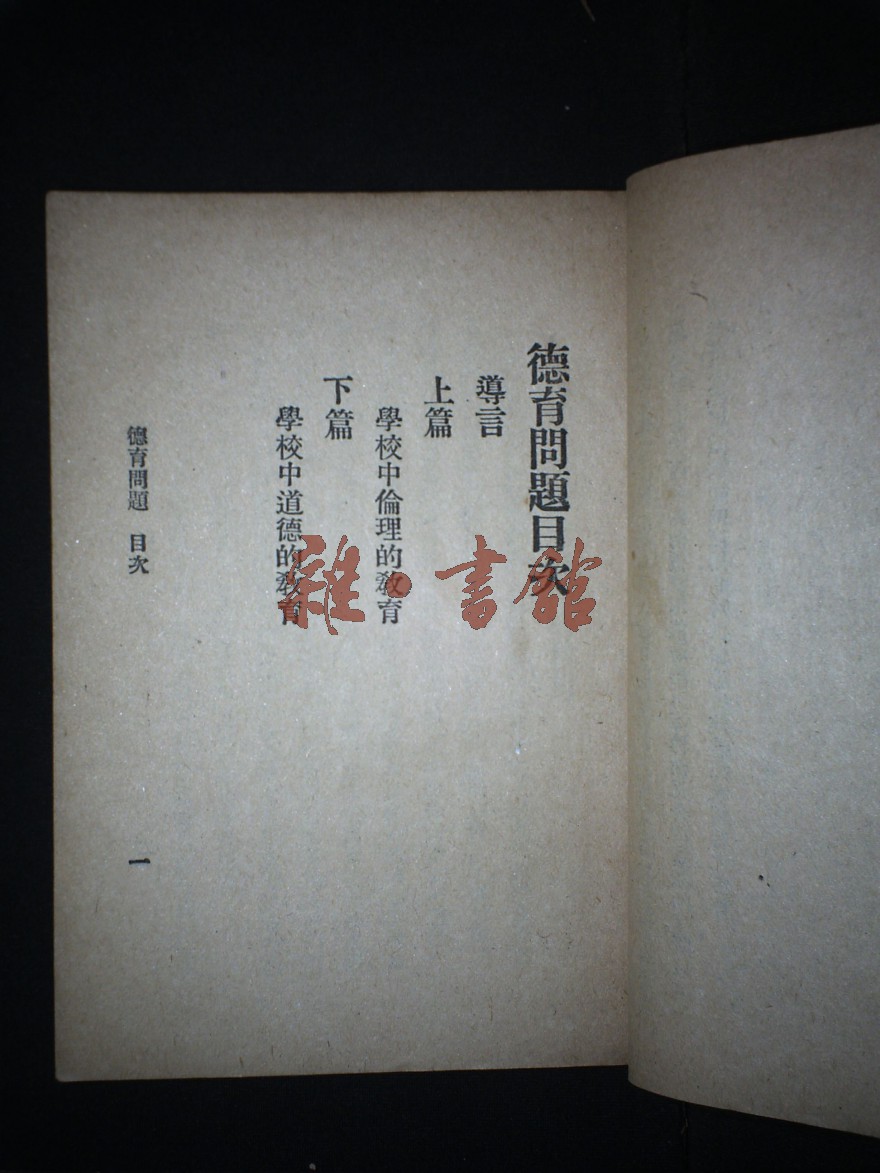 德育問題目次
導言
上篇
學校中倫理的敎育
下篇
學校中道德的敎育
德育問題 目次
一
雜·書館